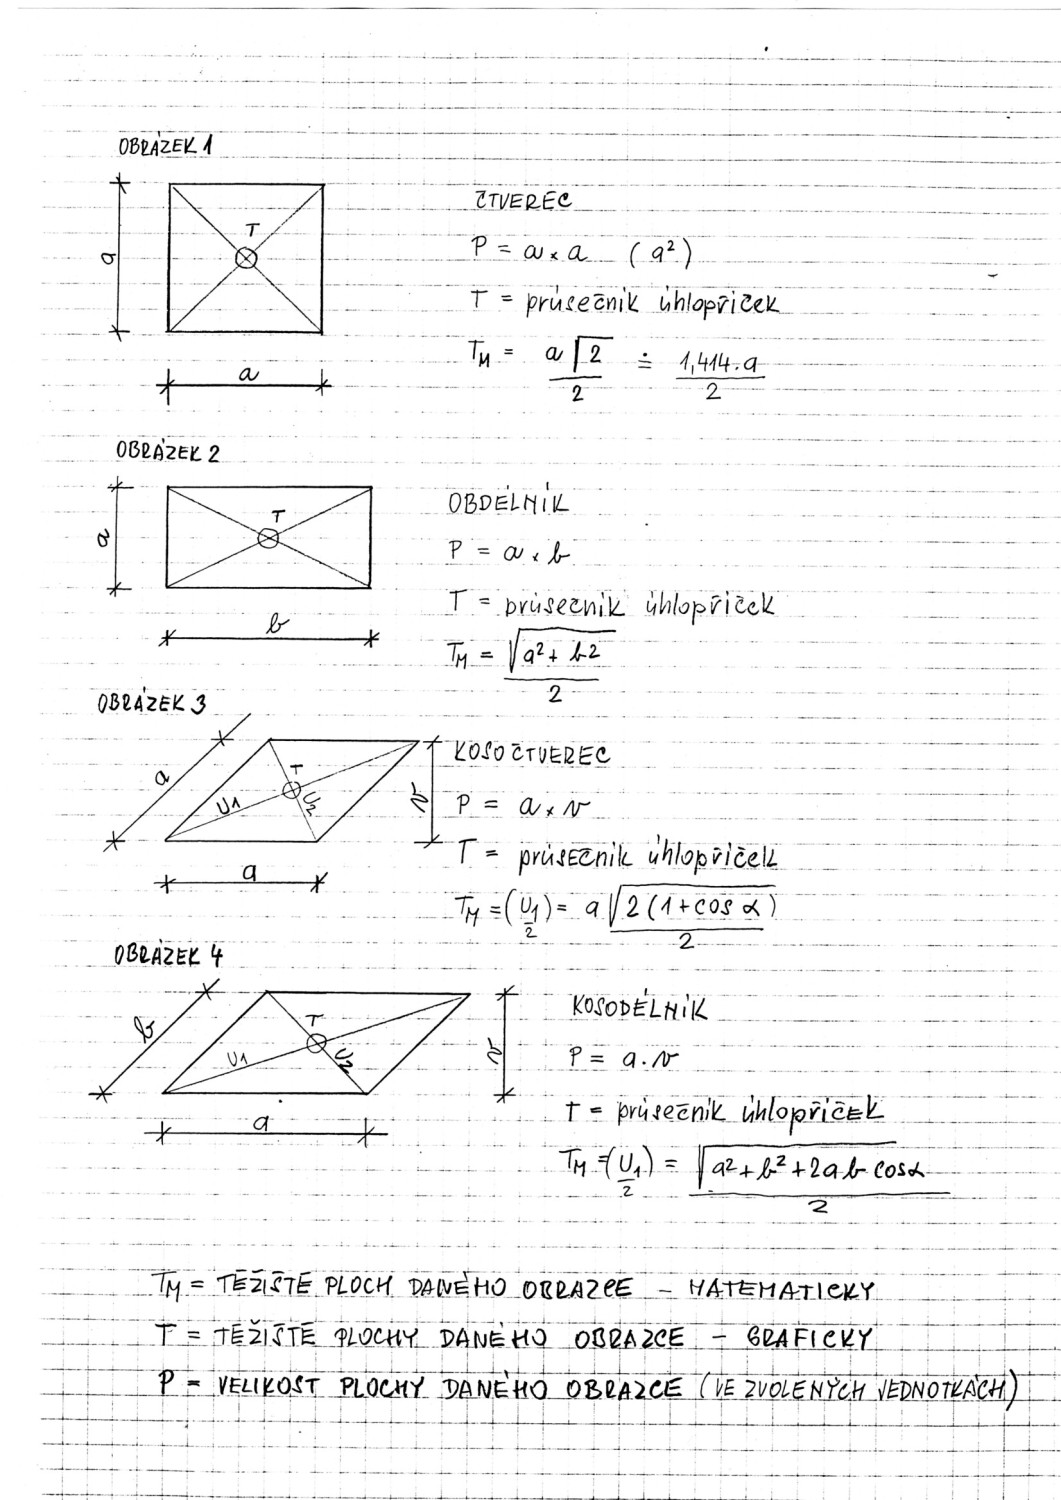 OBRÁZEK 1
a
T
a
ČTVEREC
P = a × a (a²)
T = průsečník úhlopříček
T_M = a√2/2 ≐ 1,414.a/2
OBRÁZEK 2
a
T
b
OBDÉLNÍK
P = a × b
T = průsečník úhlopříček
T_M = √(a² + b²)/2
OBRÁZEK 3
a
T
U1
U2
v
a
KOSOČTVEREC
P = a × v
T = průsečník úhlopříček
T_M = (U1/2) = a√(2(1+cos α))/2
OBRÁZEK 4
b
T
U1
U2
v
a
KOSODÉLNÍK
P = a . v
T = průsečník úhlopříček
T_M = (U1/2) = √(a² + b² + 2ab cos α)/2
T_M = TĚŽIŠTĚ PLOCH DANÉHO OBRAZCE – MATEMATICKY
T = TĚŽIŠTĚ PLOCHY DANÉHO OBRAZCE – GRAFICKY
P = VELIKOST PLOCHY DANÉHO OBRAZCE (VE ZVOLENÝCH JEDNOTKÁCH)